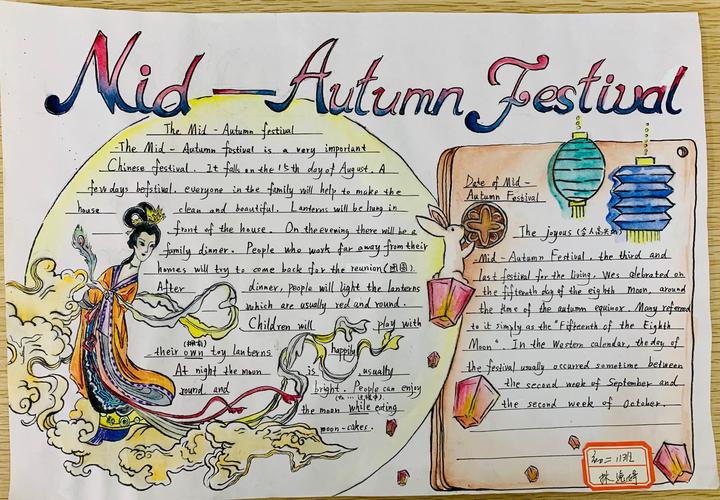 Mid-Autumn Festival
The Mid-Autumn festival
The Mid-Autumn festival is a very important
Chinese festival. It falls on the 15th day of August. A
few days befstival. everyone in the family will help to make the
house clean and beautiful. Lanterns will be hung in
front of the house. On the evening there will be a
family dinner. People who work far away from their
homes will try to come back for the reunion(团圆).
After dinner, people will light the lanterns
which are usually red and round.
Children will play with
(拥有)
their own toy lanterns happily
At night the moon is usually
round and bright. People can enjoy
(在…过程中)
the moon while eating
moon-cakes.
Date of Mid-
Autumn Festival
The joyous (令人高兴的)
Mid-Autumn Festival, the third and
last festival for the living. Wes celebrated on
the fifteenth day of the eighth moon, around
the time of the autumn equinox. Many referred
to it simply as the "Fifteenth of the Eighth
Moon". In the Western calendar, the day of
the festival usually occurred sometime between
the second week of September and
the second week of October.
初二 11班